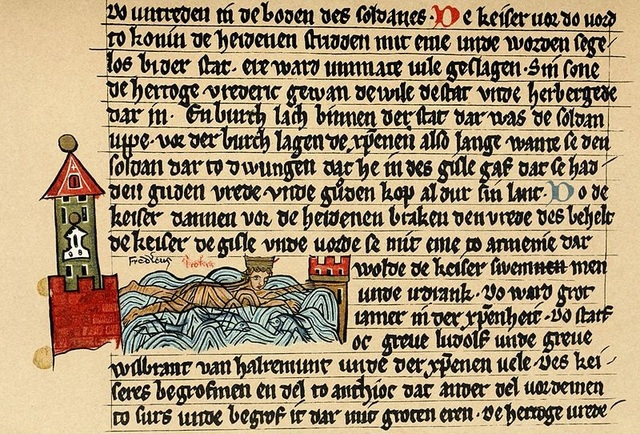 vo untreden in de boden des soldanes. De keiser vor do vord
to konin de heidenen stridden mit eme unde worden sege
los bi der stat. ere ward ummate vile geslagen. Sin sone
de hertoge vrederic gewan de wile de stat unde herbergede
dar in. En burch lach binnen der stat dar was de soldan
uppe. vor der burch lagen de xpenen also lange wante se den
soldan dar to dwungen dat he in des gisle gaf dat se had
den guden vrede. unde guden kop al dur sin lant. Do de
keiser dannen vor de heidenen braken den vrede des behelt
de keiser de gisle unde vorde se mit eme to armenie dar
Fredicus
wolde de keiser swemmen
unde irdrank. Do ward grot
iamer in der xpenheit. Do starf
oc greve ludolf unde greve
wilbrant van halremunt unde der xpenen vele. Des kei
seres begrofmen en del to anthioc dat ander del vordemen
to surs unde begrof it dar mit groten eren. de hertoge vrede